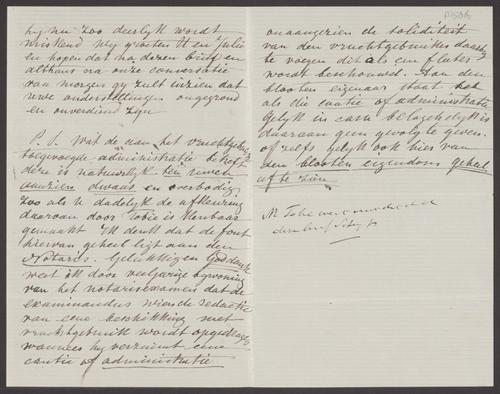 hij nu zoo deerlijk wordt
miskend wij groeten U en Julie
en hopen dat na dezen brief en
althans na onze conversatie
van morgen gij zult inzien dat
uwe onderstellingen ongegrond
en onverdiend zijn
P. S. Wat de aan het vruchtgebruik
toegevoegde administratie betreft
deze is natuurlijk ten uwen
aanzien dwaas en overbodig
zoo als U dadelijk de afkeuring
daarvan door Tobie is kenbaar
gemaakt Ik denk dat de fout
hiervan geheel ligt aan den
Notaris. Gelukkig en Goddank
weet ik door veeljarige bijwoning
van het notarisexamen dat de
examinandus wiens de redactie
van eene beschikking met
vruchtgebruik wordt opgedragen
wanneer hij verzuimt eene
cautie of administratie
onaangezien de soliditeit
van den vruchtgebruiker daarbij
te voegen dit als een flater
wordt beschouwd. Aan den
blooten eigenaar staat het
als die cautie of administratie
gelijk in casu belachelijk is
daaraan geen gevolg te geven
of zelfs gelijk ook hier van
den blooten eigendom geheel
af te zien
M Tobie weet
den brief